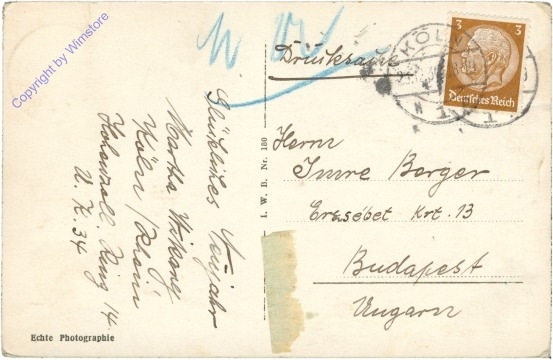 Copyright by Wimstore
Drucksache
KÖLN
1
3 3
Deutsches Reich
Glückliches Neujahr
Köln/Rhein
Hohenzoll. Ring 14
Herrn
Imre Berger
Erzsébet Krt. 13
Budapest
Ungarn
I. W. B. Nr. 180
Echte Photographie